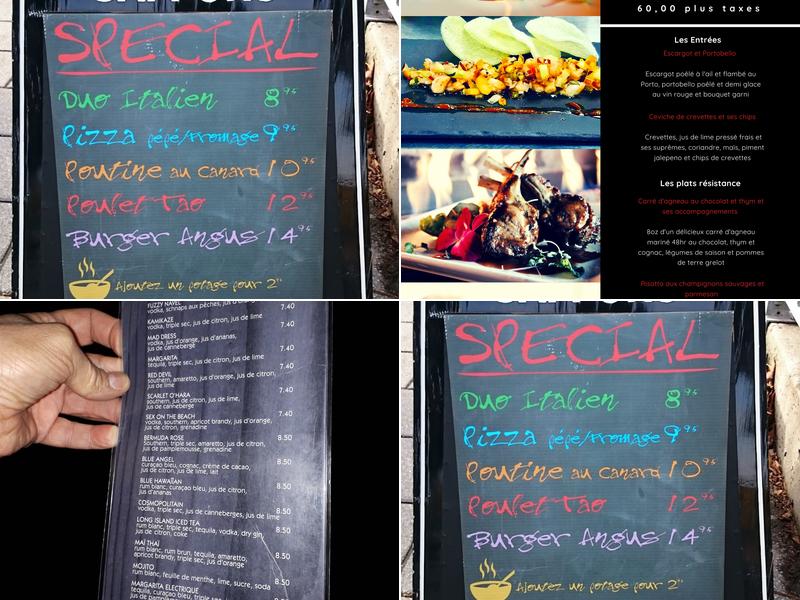 SPECIAL
Duo Italien 8⁹⁵
Pizza pépé/fromage 9⁹⁵
Poutine au canard 10⁹⁵
Poulet Tao 12⁹⁵
Burger Angus 14⁹⁵
Ajoutez un potage pour 2"
60,00 plus taxes
Les Entrées
Escargot et Portobello
Escargot poêlé à l'ail et flambé au
Porto, portobello poêlé et demi glace
au vin rouge et bouquet garni
Ceviche de crevettes et ses chips
Crevettes, jus de lime pressé frais et
ses suprêmes, coriandre, maïs, piment
jalepeno et chips de crevettes
Les plats résistance
Carré d'agneau au chocolat et thym et
ses accompagnements
8oz d'un délicieux carré d'agneau
mariné 48hr au chocolat, thym et
cognac, légumes de saison et pommes
de terre grelot
Pisatto aux champignons sauvages et
parmesan
FUZZY NAVEL
vodka, schnaps aux pêches, jus d'orange
7.40
KAMIKAZE
vodka, triple sec, jus de citron, jus de lime
7.40
MAD DRESS
vodka, jus d'orange, jus d'ananas,
jus de canneberge
7.40
MARGARITA
tequila, triple sec, jus de citron, jus de lime
7.40
RED DEVIL
southern, amaretto, jus d'orange, jus de citron,
jus de lime
7.40
SCARLET O'HARA
southern, jus de citron, jus de lime,
jus de canneberge
7.40
SEX ON THE BEACH
vodka, southern, apricot brandy, jus d'orange,
jus de citron, grenadine
7.40
BERMUDA ROSE
Southern, triple sec, amaretto, jus de citron,
jus de pamplemousse, grenadine
8.50
BLUE ANGEL
curaçao bleu, cognac, crème de cacao,
jus de citron, jus de lime, lait
8.50
BLUE HAWAÏAN
rum blanc, curaçao bleu, jus de citron,
jus d'ananas
8.50
COSMOPOLITAIN
vodka, triple sec, jus de canneberges, jus de lime
8.50
LONG ISLAND ICED TEA
rum blanc, triple sec, tequila, vodka, dry gin,
jus de citron, coke
8.50
MAÏ THAÏ
rum blanc, rum brun, tequila, amaretto,
apricot brandy, triple sec, jus d'orange
8.50
MOJITO
rum blanc, feuille de menthe, lime, sucre, soda
8.50
MARGARITA ELECTRIQUE
tequila, curaçao bleu, jus de citron,
SPECIAL
Duo Italien 8⁹⁵
Pizza pépé/fromage 9⁹⁵
Poutine au canard 10⁹⁵
Poulet Tao 12⁹⁵
Burger Angus 14⁹⁵
Ajoutez un potage pour 2"